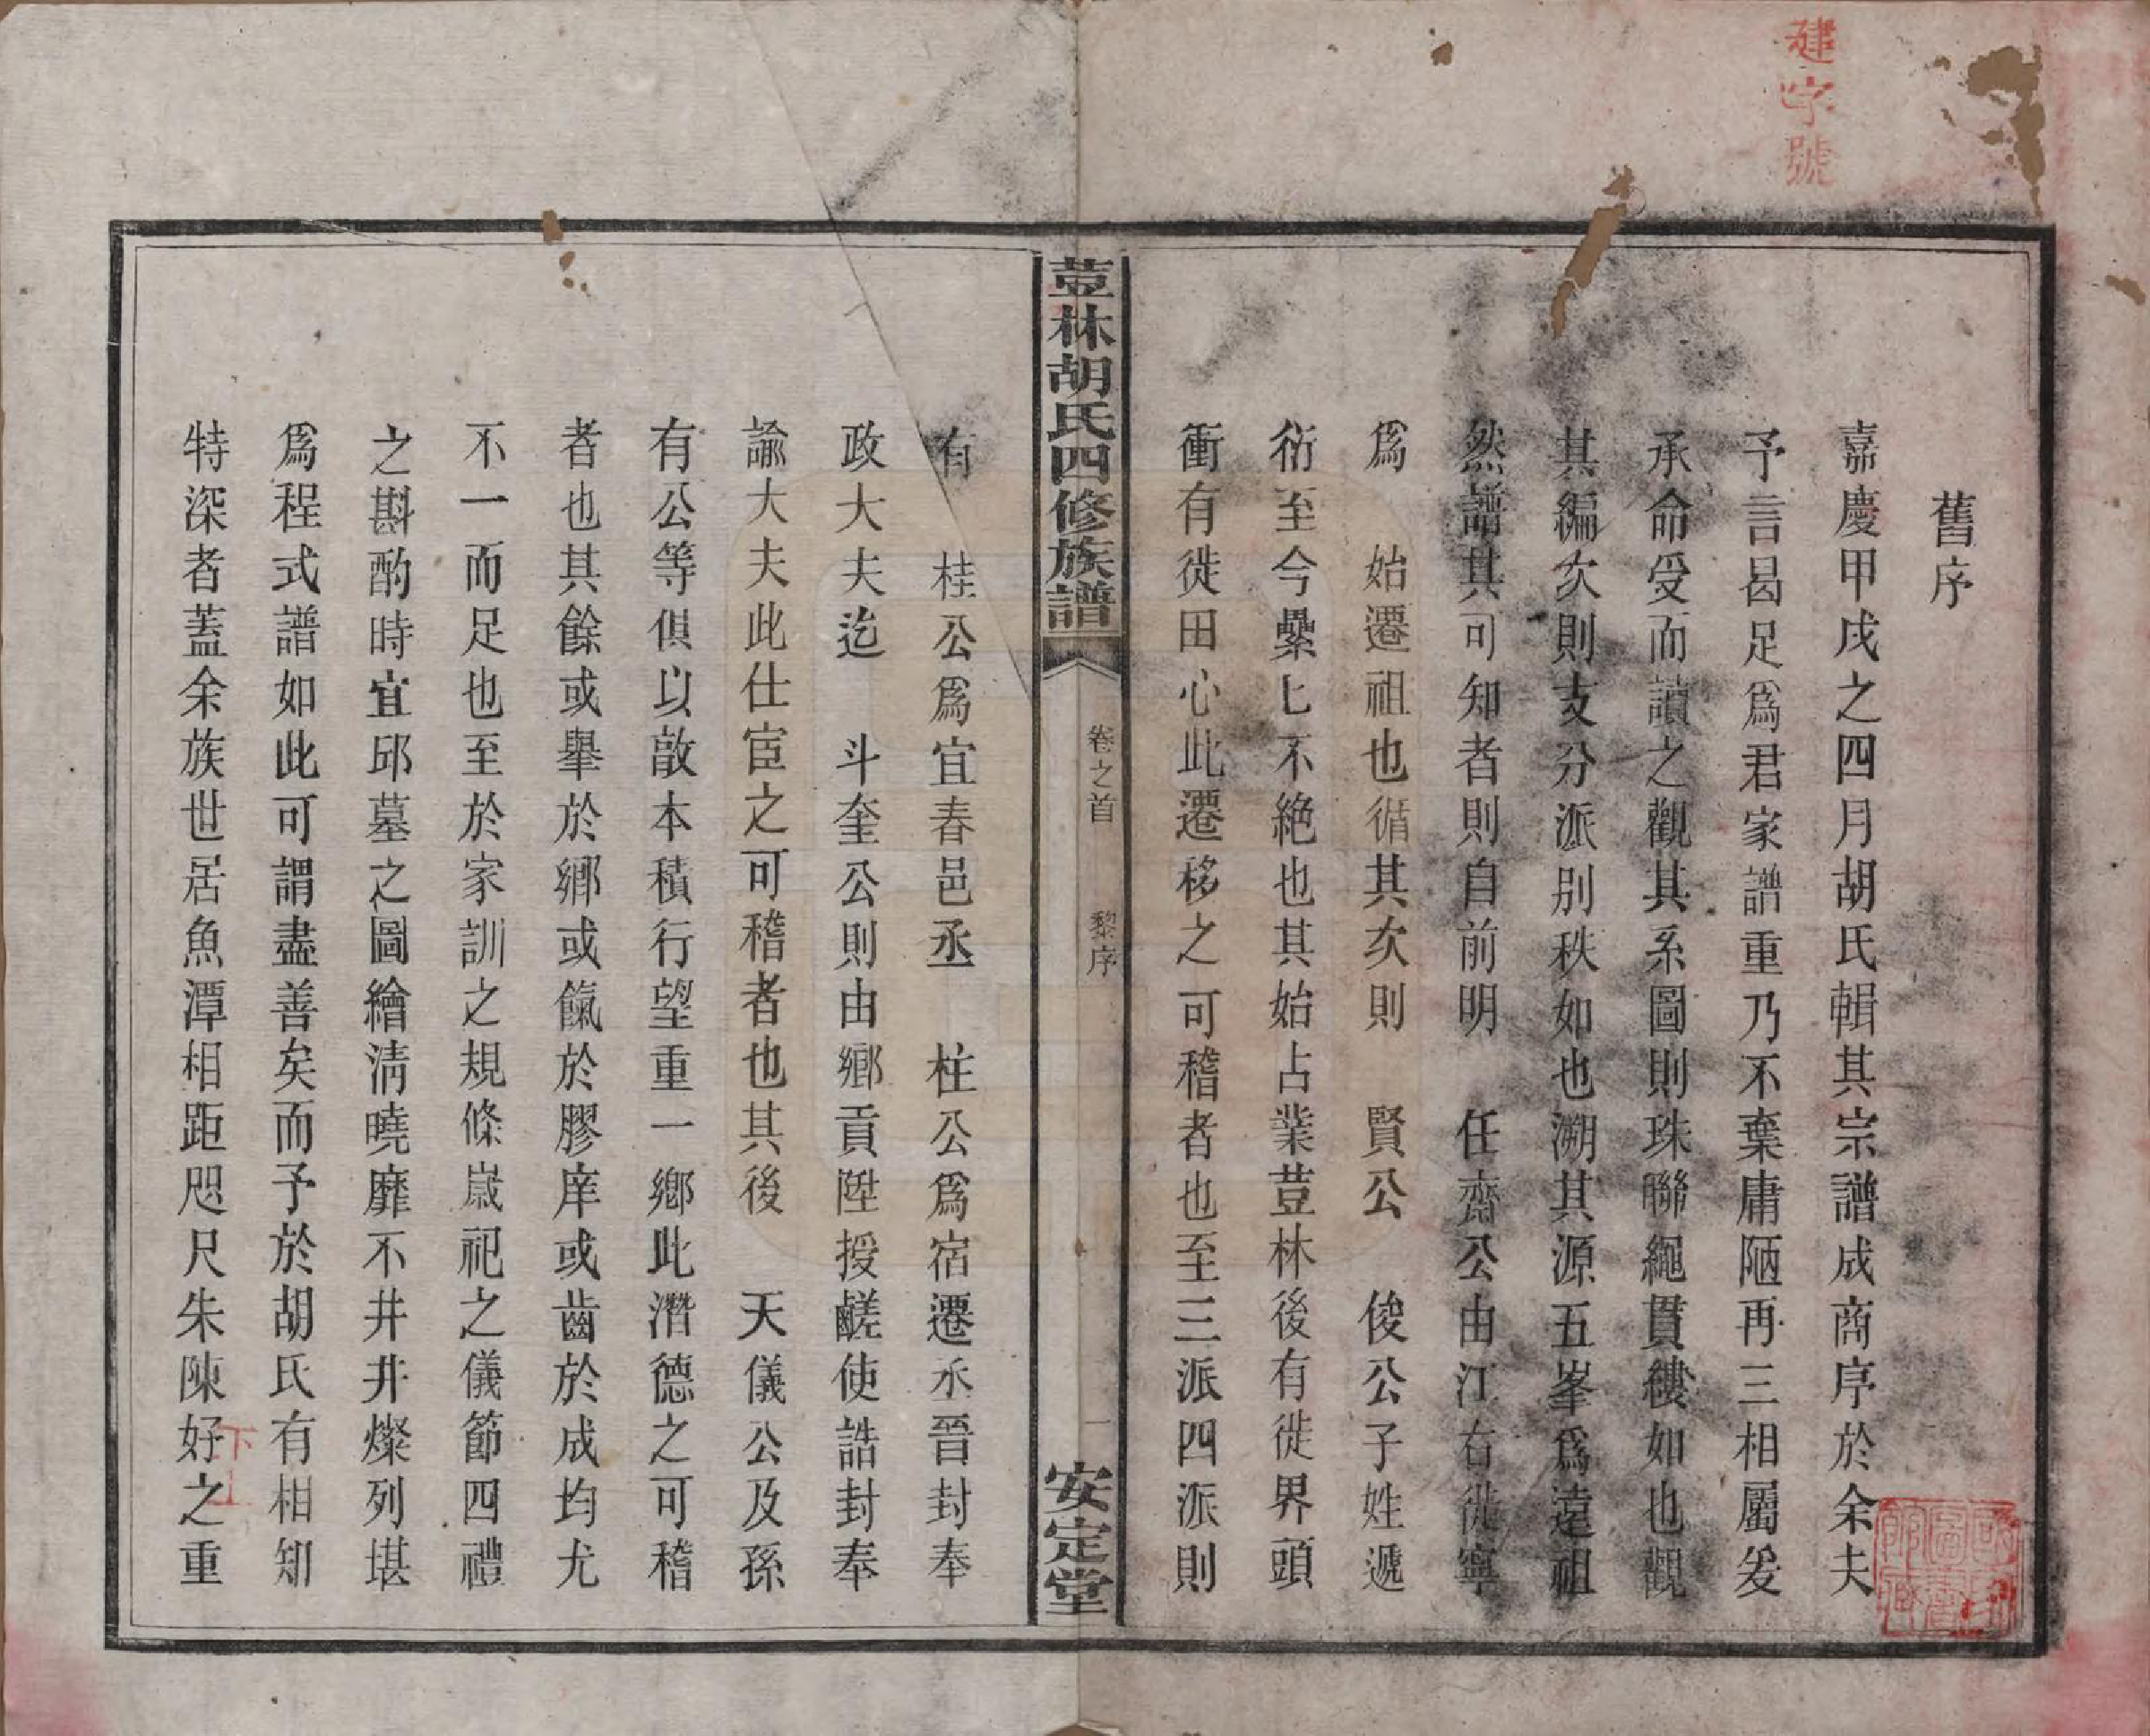 建字號
舊序
嘉慶甲戌之四月胡氏輯其宗譜成商序於余夫
予言曷足爲君家譜重乃不棄庸陋再三相屬爰
承命受而讀之觀其系圖則珠聯繩貫縷如也觀
其編次則支分派別秩如也溯其源五峯爲遠祖
然譜其可知者則自前明　任齋公由江右徙寧
爲　始遷祖也循其次則　賢公　俊公子姓遞
衍至今纍匕不絶也其始占業荳林後有徙界頭
衝有徙田心此遷移之可稽者也至三派四派則
荳林胡氏四修族譜
卷之首　黎序
一
安定堂
有　桂公爲宜春邑丞　柱公爲宿遷丞晉封奉
政大夫迄　斗奎公則由鄉貢陞授鹺使誥封奉
諭大夫此仕宦之可稽者也其後　天儀公及孫
有公等俱以敵本積行望重一鄉此潛德之可稽
者也其餘或舉於鄉或餼於膠庠或齒於成均尤
不一而足也至於家訓之規條嵗祀之儀節四禮
之斟酌時宜邱墓之圖繪淸曉靡不井井燦列堪
爲程式譜如此可謂盡善矣而予於胡氏有相知
特深者蓋余族世居魚潭相距咫尺朱陳好之重